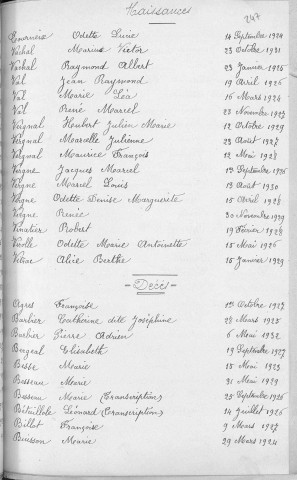 Naissances
247
Odette Lucie 14 Septembre 1924
Marius Victor 23 Octobre 1931
Raymond Albert 23 Janvier 1926
Val Jean Raymond 14 Avril 1926
Val Marie Léa 16 Mars 1926
Val René Marcel 22 Novembre 1923
Veignal Hubert Julien Marie 12 Octobre 1929
Veignal Marcelle Julienne 23 Août 1927
Veignal Maurice François 12 Mai 1928
Vergne Jacques Marcel 13 Septembre 1926
Vergne Marcel Louis 13 Août 1930
Vergne Odette Denise Marguerite 15 Avril 1928
Vergne Renée 30 Novembre 1929
Vinatier Robert 19 Février 1928
Virolle Odette Marie Antoinette 15 Mai 1926
Alice Berthe 15 Janvier 1929
- Décès -
Agnes Françoise 1er Octobre 1927
Barbier Catherine dite Joséphine 28 Mars 1925
Barbier Pierre Adrien 6 Mai 1932
Bergeal Elisabeth 19 Septembre 1927
Besse Marie 15 Mai 1923
Besseau Marie 31 Mai 1929
Besseau Marie (transcription) 25 Septembre 1926
Bétaillole Léonard (transcription) 14 Juillet 1926
Billot Françoise 9 Mars 1927
Buisson Marie 29 Mars 1924